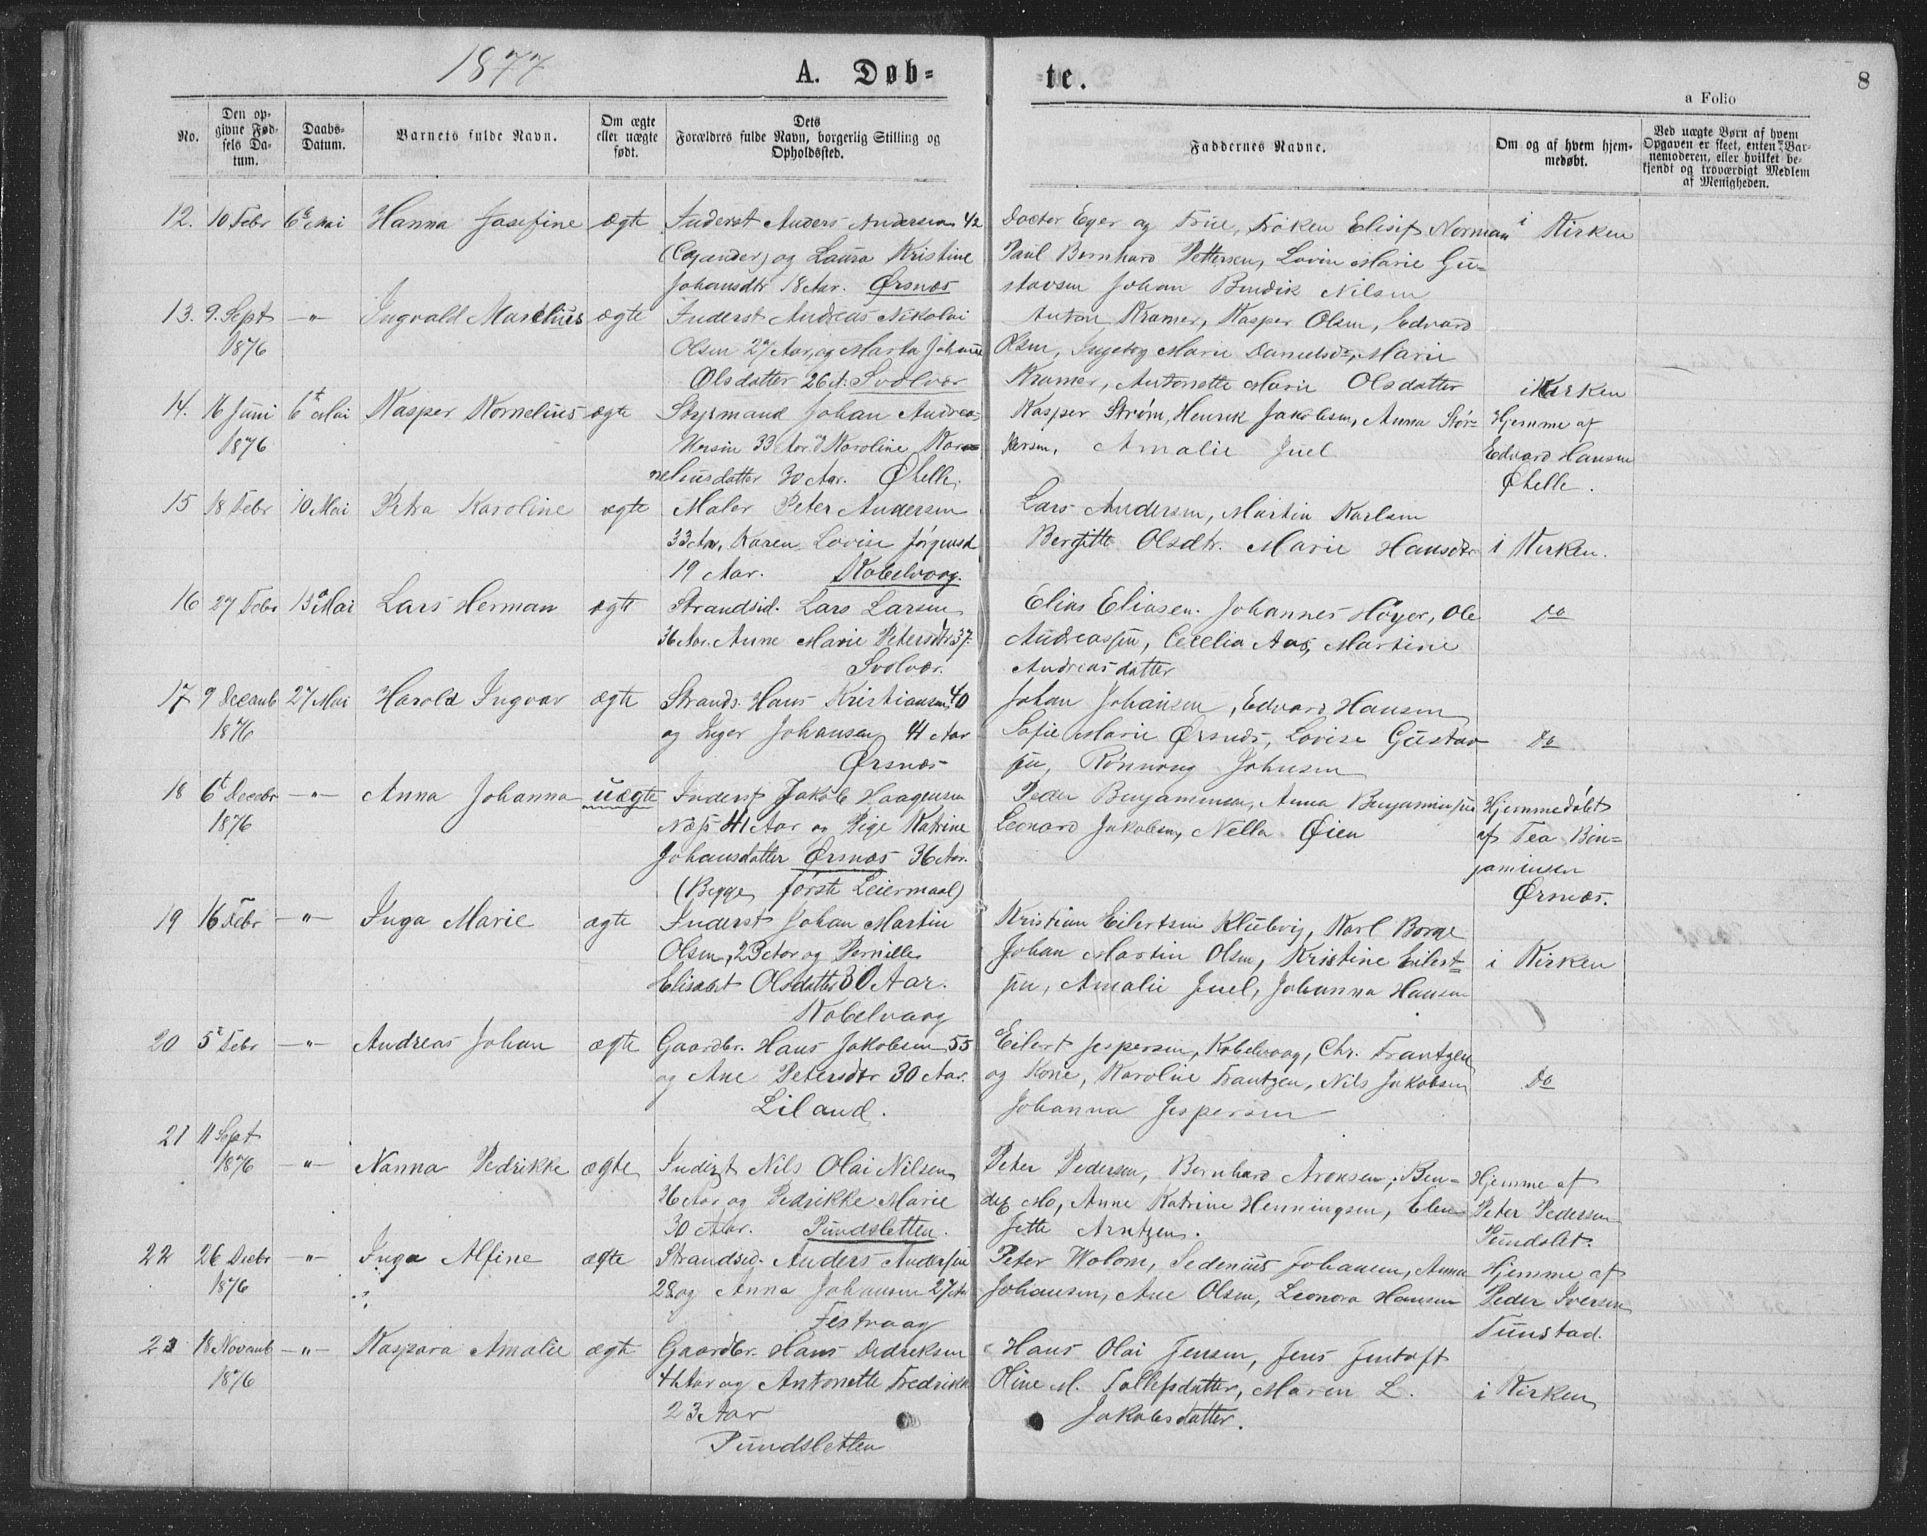 1877
A. Døb-
te.
8
a Folio
No.
Den op-
givne Fød-
sels Da-
tum.
Daabs-
Datum.
Barnets fulde Navn.
Om ægte
eller uægte
født.
Dets
Forældres fulde Navn, borgerlig Stilling og
Opholdssted.
Faddernes Navne.
Om og af hvem hjem-
medøbt.
Ved uægte Børn af hvem
Opgaven er skeet, enten Bar-
nemoderen, eller hvilket be-
kjendt og troværdigt Medlem
af Menigheden.
12. 10 Febr 6 Mai Hanna Josefine ægte Inderst Anders Andersen 42 Doctor Eger og Frue, Frøken Elisif Norman i Kirken
og Laura Kristine Paul Bernhard Pettersen, Lovise Marie Gu-
Johansdtr 18 Aar. Ørsnæs stavsen Johan Bendik Nilsen
13. 9. Sept -"- Ingvald Marelius ægte Inderst Andreas Nikolai Anton Kramer, Kasper Olsen, Edvard
1876 Olsen 27 Aar, og Marta Johanne Olsen, Ingeborg Marie Danielsdr, Marie
Olsdatter 26 A. Svolvær Kramer, Antonette Marie Olsdatter i Kirken
14. 16 Juni 6t Mai Kasper Kornelius ægte Styrmand Johan Andreas Kasper Strøm, Henrik Jakobsen, Anna Stør- Hjemme af
1876 33 Aar og Karoline Kor- kersen, Amalie Juel Edvard Hansen
neliusdatter 30 Aar. Øhelle. Øhelle.
15 18 Febr 10 Mai Petra Karoline ægte Maler Peter Andersen Lars Andersen, Martin Karlsen
33 Aar, Karen Lovise Jørgensd Bergitte Olsdtr. Marie Hansdtr i Kirken.
19 Aar. Kabelvaag.
16 27 Febr 13 Mai Lars Herman ægte Strandsid. Lars Larsen Elias Eliasen. Johannes Høyer, Ole Do
36 Aar. Anne Marie Petersdtr 37. Andreassen, Cecelia Aas, Martine
Svolvær. Andreasdatter
17 9 Decemb 27 Mai Harald Ingvar ægte Strands. Hans Kristiansen 40 Johan Johansen, Edvard Hansen
1876 og Inger Johansen 41 Aar Sofie Marie Ørsnæs, Lovise Gustav Do
Ørsnæs sen, Rønnaug Johnsen
18 6t Decebr -"- Anna Johanna uægte Inderst Jakob Haagensen Peder Benjaminsen, Anna Benjaminsen Hjemmedøbt
1876 Næss 41 Aar og Pige Katrine Leonard Jakobsen, Nella Øien af Tea Ben-
Johansdatter Ørsnæs 36 Aar. jaminsen
(Begge første Leiermaal) Ørsnæs.
19 16 Febr -"- Inga Marie ægte Inderst Johan Martin Kristian Eilertsen Klubvig, Karl Borge
Olsen, 23 Aar og Pernille Johan Martin Olsen, Kristine Eilert- i Kirken
Elisabet Olsdatter 30 Aar. sen, Amalie Juel, Johanna Hansen
Kabelvaag
20 5 Febr -"- Andreas Johan ægte Gaardbr. Hans Jakobsen 55 Eilert Jespersen, Kabelvaag, Chr. Frantzen
og Ane Petersdtr 30 Aar. og Kone, Karoline Frantzen, Nils Jakobsen Do
Liland. Johanna Jespersen
21 11 Sept
1876 -"- Nanna Pedrikke ægte Inderst Nils Olai Nilsen Peter Pedersen, Bernhard Aronsen, Ben- Hjemme af
36 Aar og Pedrikke Marie Mo, Anne Katrine Henningsen, Elen- Peter Pedersen
30 Aar. Pundsletten. Jette Arntzen. Pundslet.
22 26 Decbr -"- Inga Alfine ægte Strandsid. Anders Andersen Peter Holom, Sedenius Johansen, Anna Hjemme af
1876 28 og Anna Johansen 27 Aar Johansen, Ane Olsen, Leonora Hansen Peder Iversen
Festvaag Tunstad.
23 18 Novemb -"- Kaspara Amalie ægte Gaardbr. Hans Dedriksen Hans Olai Jensen, Jens Jentoft
1876 41 Aar og Antonette Fredrikke Oline M. Tollefsdatter, Maren L. i Kirken
23 Aar Jakobsdatter.
Pundsletten